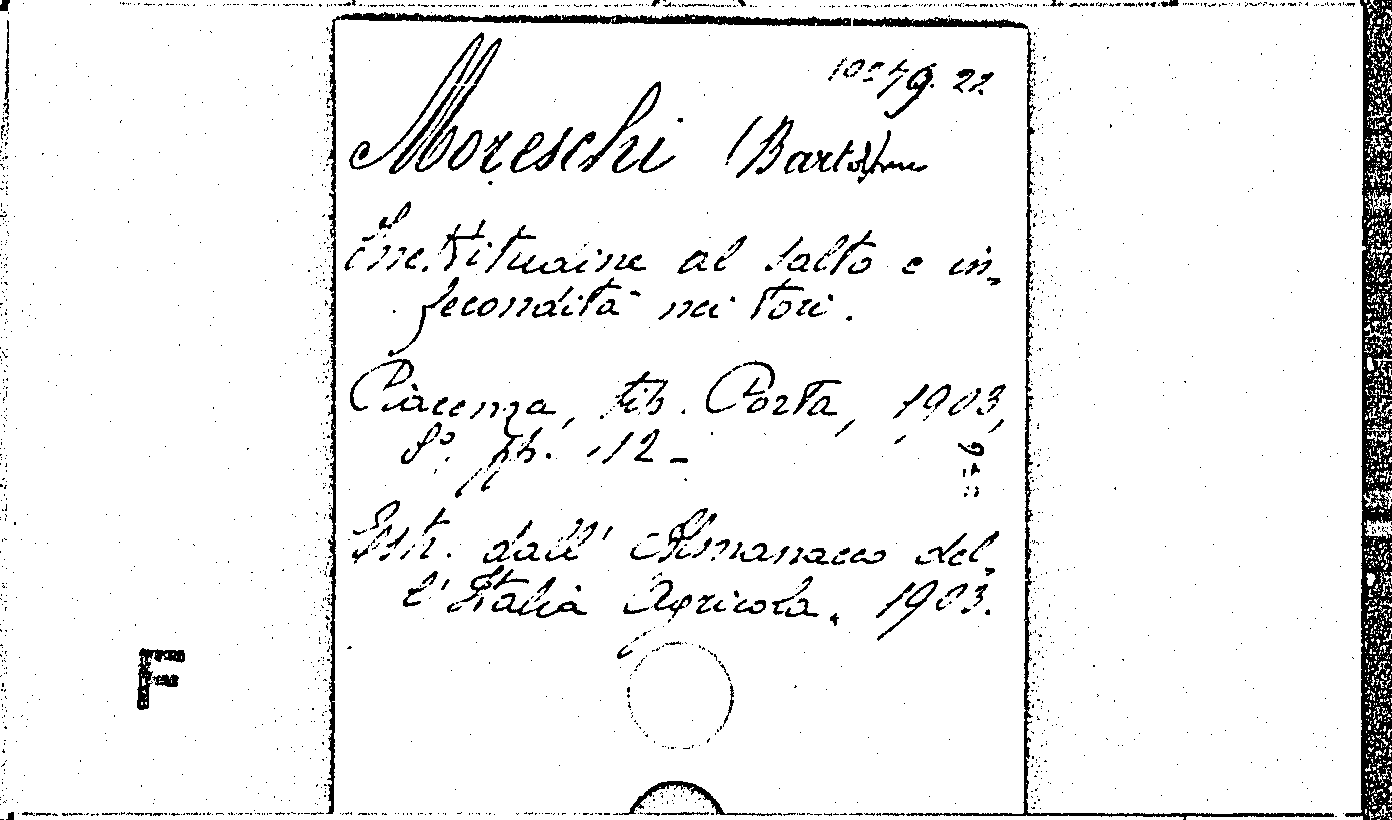 Moreschi (Bartolomeo
Inettitudine al salto e in-
fecondità nei tori.
Piacenza, tip. Porta, 1903,
8°. pp. 112 -
Estr. dall' Almanacco del-
l'Italia Agricola. 1903.
F